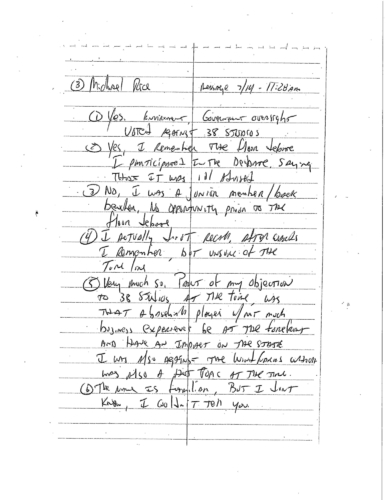 (3) Michael Rice message 7/14 - 11:28 am
① Yes. Environment, Government oversight
Voted Against 38 Studios
② Yes, I Remember The floor debate
I participated In The Debate. Saying
That IT was ill Advised
③ NO, I was A junior member/back
bencher, No Opportunity prior to The
floor debate
④ I Actually don't recall, After
I Remember, but unsure of The
Time line
⑤ Very much so. Part of my objection
to 38 Studios, AT The Time, was
THAT A baseball player w/ not much
business experience be AT The forefront
AND HAVE AN IMPACT ON THE STATE
I was Also Against The Wind farms which
was Also A hot Topic AT The Time.
⑥ The name IS familiar, BUT I don't
Know, I couldn't Tell you.